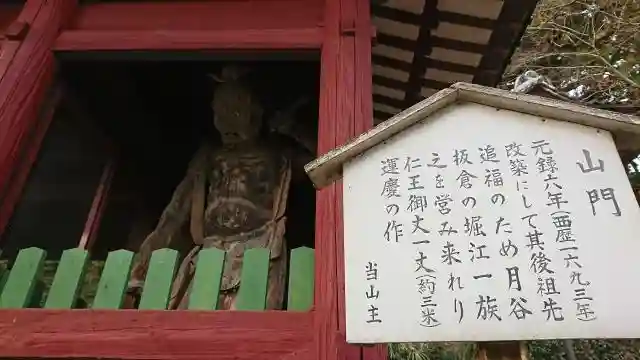 山門
元録六年(西歴一六九三年
改築にして其後祖先
追福のため月谷
板倉の堀江一族
之を営み来れり
仁王御丈一丈(約三米)
運慶の作
当山主